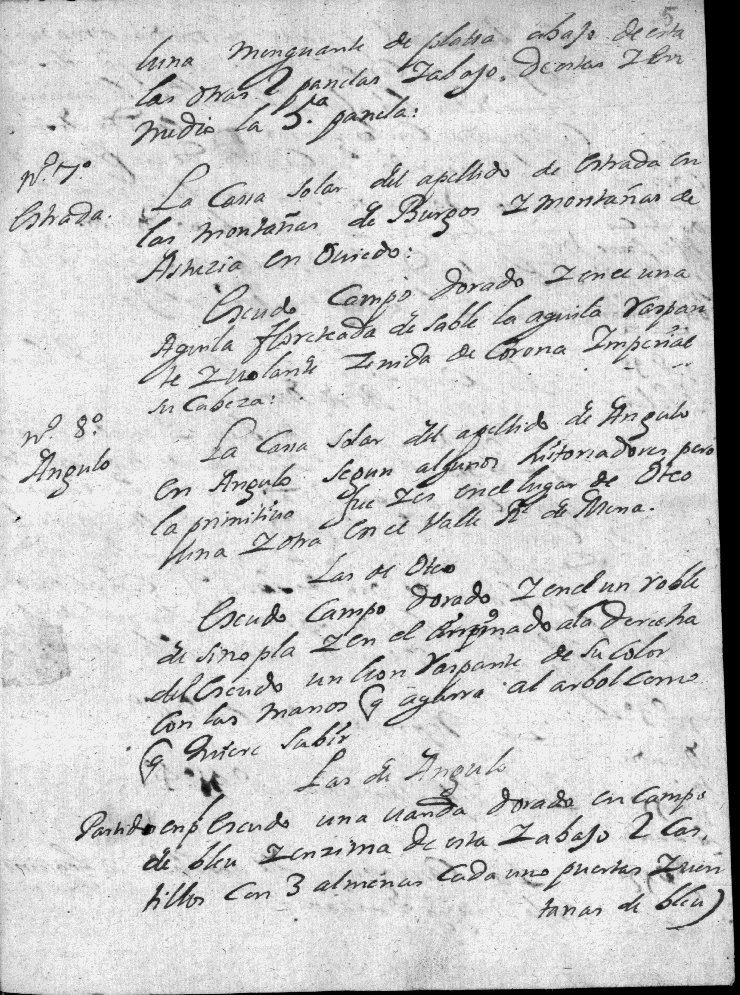 5
luna menguante de plata abajo de esta
las otras 2 panelas Zabajo. destas Z En
medio la 5.ª panela:
nº. 7º
Estrada.
La Cassa Solar del apellido de Estrada en
las montañas de Burgos Z montañas de
Asturia en Oviedo:
Escudo Campo dorado Z en el una
Aguila floreteada de Sable la aguila Raspan
te Z volante Zenida de Corona Imperial
su Cabeza:
nº. 8º.
Angulo
La Cassa Solar del apellido de Angulo
en Angulo segun algunos historiadores pero
la primitiva fue Z es en el lugar de Oteo
Una Z otra en el Valle Rl. de Mena.
Las de Oteo
Escudo Campo dorado Z en el un roble
de sinopla Z en el empinado ala derecha
del Escudo un leon Raspante de su Color
Con las manos q agarra al arbol Como
q quiere Subir
Las de Angulo
Partido en p Escudo una vanda dorada en Campo
de bleu Z enzima de esta Z abajo 2 Cas,
tillos Con 3 almenas Cada uno puertas Z ven
tanas de bleu)